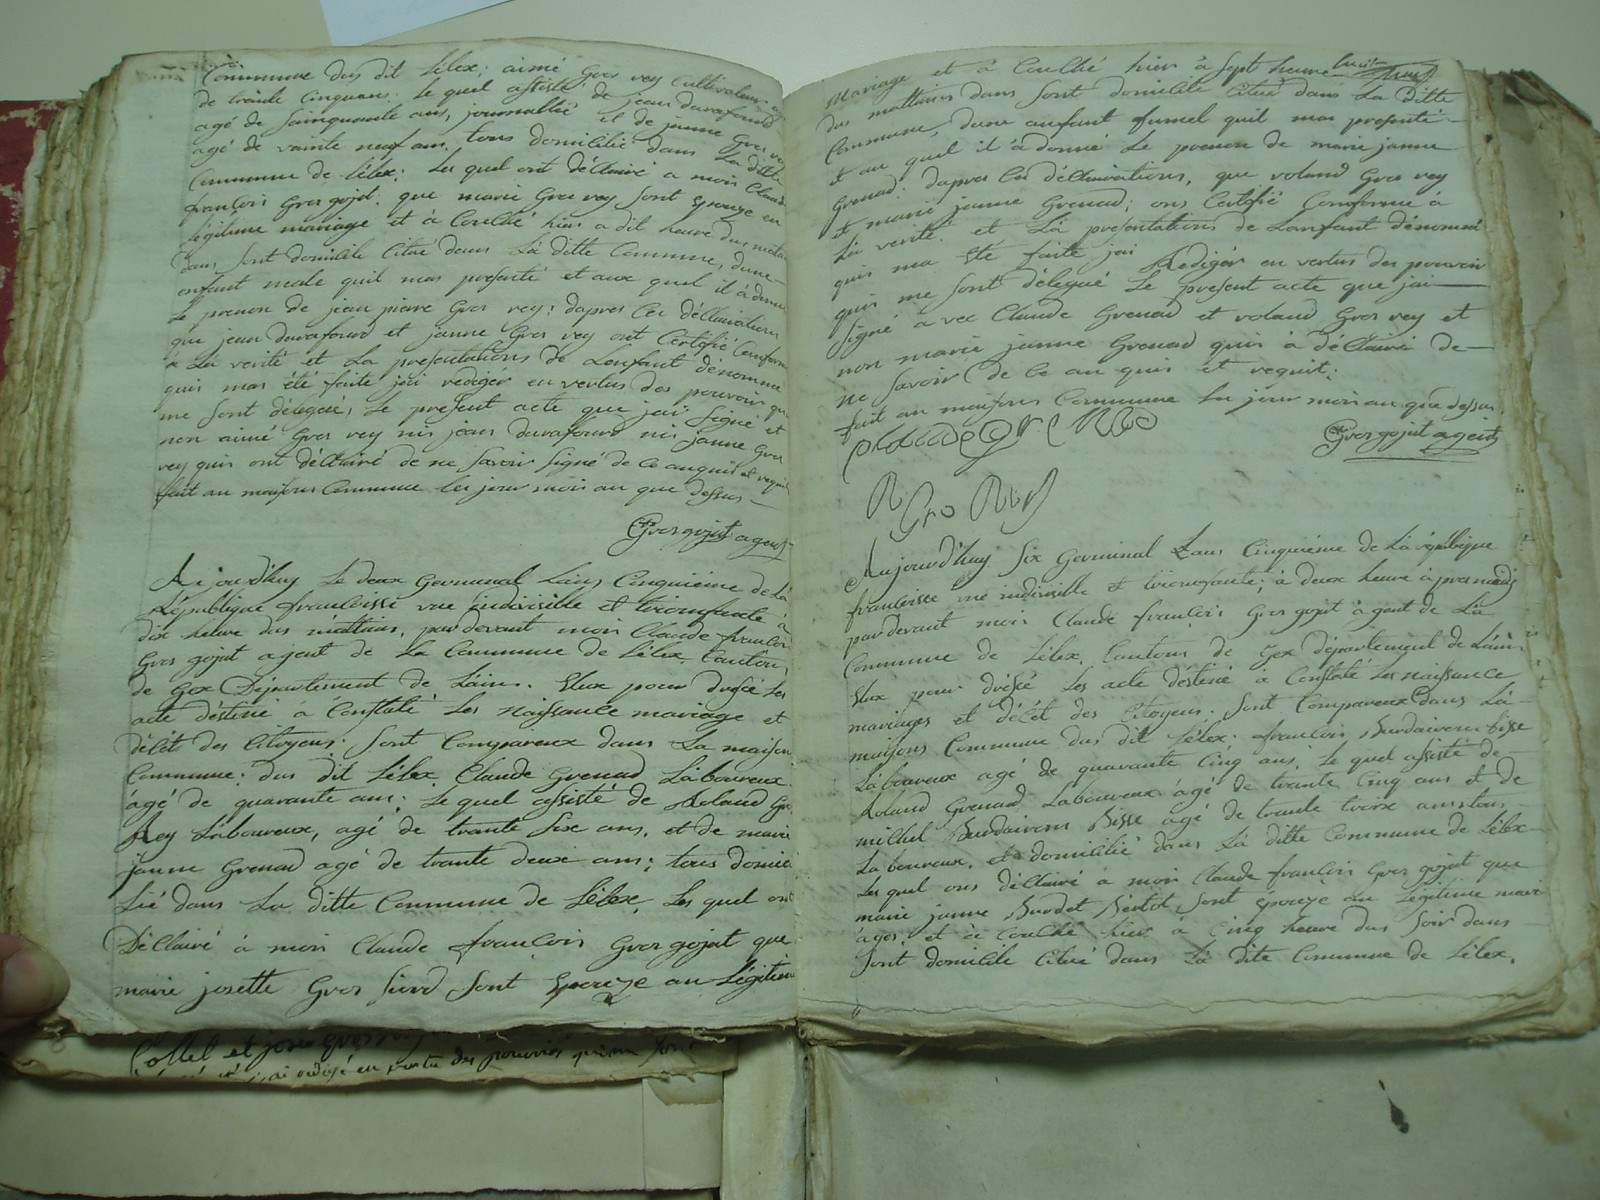 Commune dus dit Lélex; aimé Gros rey Cultivateur agé
de trainte Cinquans. le quel assisté de jean durafourd
agé de Sainquante ans, journallié et de janne Gros rey
agé de vainte neuf ans. tous domicilié dans La ditte
Commune de Lélex; Les quel ont déClairé a moin Claude
francois Gros gojat. que marie Gros rey Sont Epouze en
Légitime mariage et à Couché hier a dit heure dus matin
dans Sont domicile Citué dans Là ditte Commune, dune
enfant male quil mas présenté et aux quel il à donné
Le prenon de jean pierre Gros rey; dapres Les déClairations
que jean durafourd et janne Gros rey ont Certifié Conforme
à La verité et La présentations de Lenfant dénommé
quis mas été faite jai redigér en vertus des pouvoir qui
me Sont délégué, Le présent acte que jai Signé et
non aimé Gros rey nis jean durafourd nis janne Gros
rey quis ont déClairé de ne Savoir Signé de Ce anquis et requit
fait an maisons Commune les jour mois an que dessus
Gros gojat agent
Aujourd'huy Le deux Germinal Lans Cinquième de Là
République francoisse une indivisible et trionfante à
dix heure dus mattins, pardevant moin Claude francois
Gros gojat agent de La Commune de Lélex Cantons
de Gex Département de Lains. Elux pour dressé Les
acte déstiné à Constaté Les Naissance mariage et
décét des Citoyens; Sont Compareux dans La maison
Commune; dus dit Lélex Claude Grenad Laboureux
agé de quarante ans; Le quel assisté de Roland Gros
Rey Laboureux, agé de trante Six ans, et de marie
janne Grenad agé de trante deux ans; tous domici
lié dans La ditte Commune de Lélex, Les quel ont
DéClairé à moin Claude francois Gros gojat que
marie josette Gros Siord Sont Epouze an Légitime
Mariage et à Couché hier à Sept heure
dus mattains dans Sont domicile Citué dans La ditte
Commune, dune anfant fumel quil mas presenté
et au quel il à donné Le prenon de marie janne
Grenad. dapres Les déClairations, que roland Gros rey
et marie janne Grenad; ons Certifié Conforme à
Là verité et Là présentations de Lanfant dénommé
quis ma Eté faite jai Rediger en vertus des pouvoir
quis me Sont délegué Le présent acte que jai
Signé a vec Claude Grenad et roland Gros rey et
non marie janne Grenad quis à déClairé de
ne Savoir de Ce an quis et requit;
fait an maisons Commune Les jour mois an que dessus
Gros gojat agent
R Gro Rey
Aujourd'huy Six Germinal Lans Cinquième de Là république
francoisse une indivisible et trionfante; à deux heure àpres midis
pardevant moin Claude francois Gros gojat àgent de Là
Commune de Lélex Cantons de Gex Département de Lains
Elux pour dréssé Les acte déstiné à Constaté Les Naissance
mariages et décét des Citoyens. Sont Comparoux dans Là
maisons Commune dus dit Lélex; francois
Laboureux agé de quarante Cinq ans, Le quel assisté de
Roland Grenad Laboureux àgé de trante Cinq ans et de
michel agé de trante troix ans tous
Laboureux, et domicilié dans Là ditte Commune de Lélex
Les quel ons déClairé à moin Claude francois Gros gojat que
marie janne Sont épouze an Légitime mari
àges, et à Couché hier a Cinq heure dus Soir dans
Sont domicile Citué dans Là dite Commune de Lélex,
et
redigé en vertu des pouvoirs qui me sont